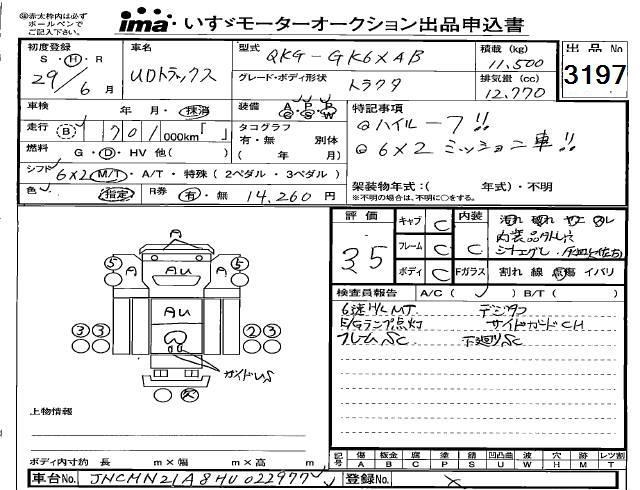 ㊟赤太枠内は必ず
ボールペンで
ご記入下さい。
ima いすゞモーターオークション出品申込書
初度登録
S・H・R
29年6月
車名
UDトラックス
型式
QKG-GK6XAB
グレード・ボディ形状
トラクタ
積載 (kg)
11,500
排気量 (cc)
12,770
出品No
3197
車検
年 月・抹消
装備
A P P
C S W
走行
B
701,000km「 」
タコグラフ
有・無 別体
( 年 月)
燃料
G・D・HV 他( )
シフト
6×2 M/T・A/T・特殊(2ペダル・3ペダル)
色
指定
R券
有・無 14,260円
特記事項
◎ハイルーフ!!
◎6×2 ミッション車!!
架装物年式:( 年式)・不明
※不明の場合は、不明に○をする。
評価
3.5
キャブ C
フレーム C
ボディ C
内装
C
汚れ 破れ ヤニ
内装品外し穴
Fガラス
割れ 線 点傷 イバリ
検査員報告
A/C( ✓ )B/T( )
6速H/L MT
デジタコ
E/Gランプ点灯
サイドガードCH
フレームSC
下廻りSC
A
5 A A 5
Au
Au
3 3 2 3
ガイドUS
上物情報
ボディ内寸約 長 m×幅 m×高 m
記号
傷 板金 腐 塗 錆 凹凸曲 波 穴 跡 レツ割
A B C P S U W H M T
車台No.
JNCMN21A8HU022977
登録No.
×